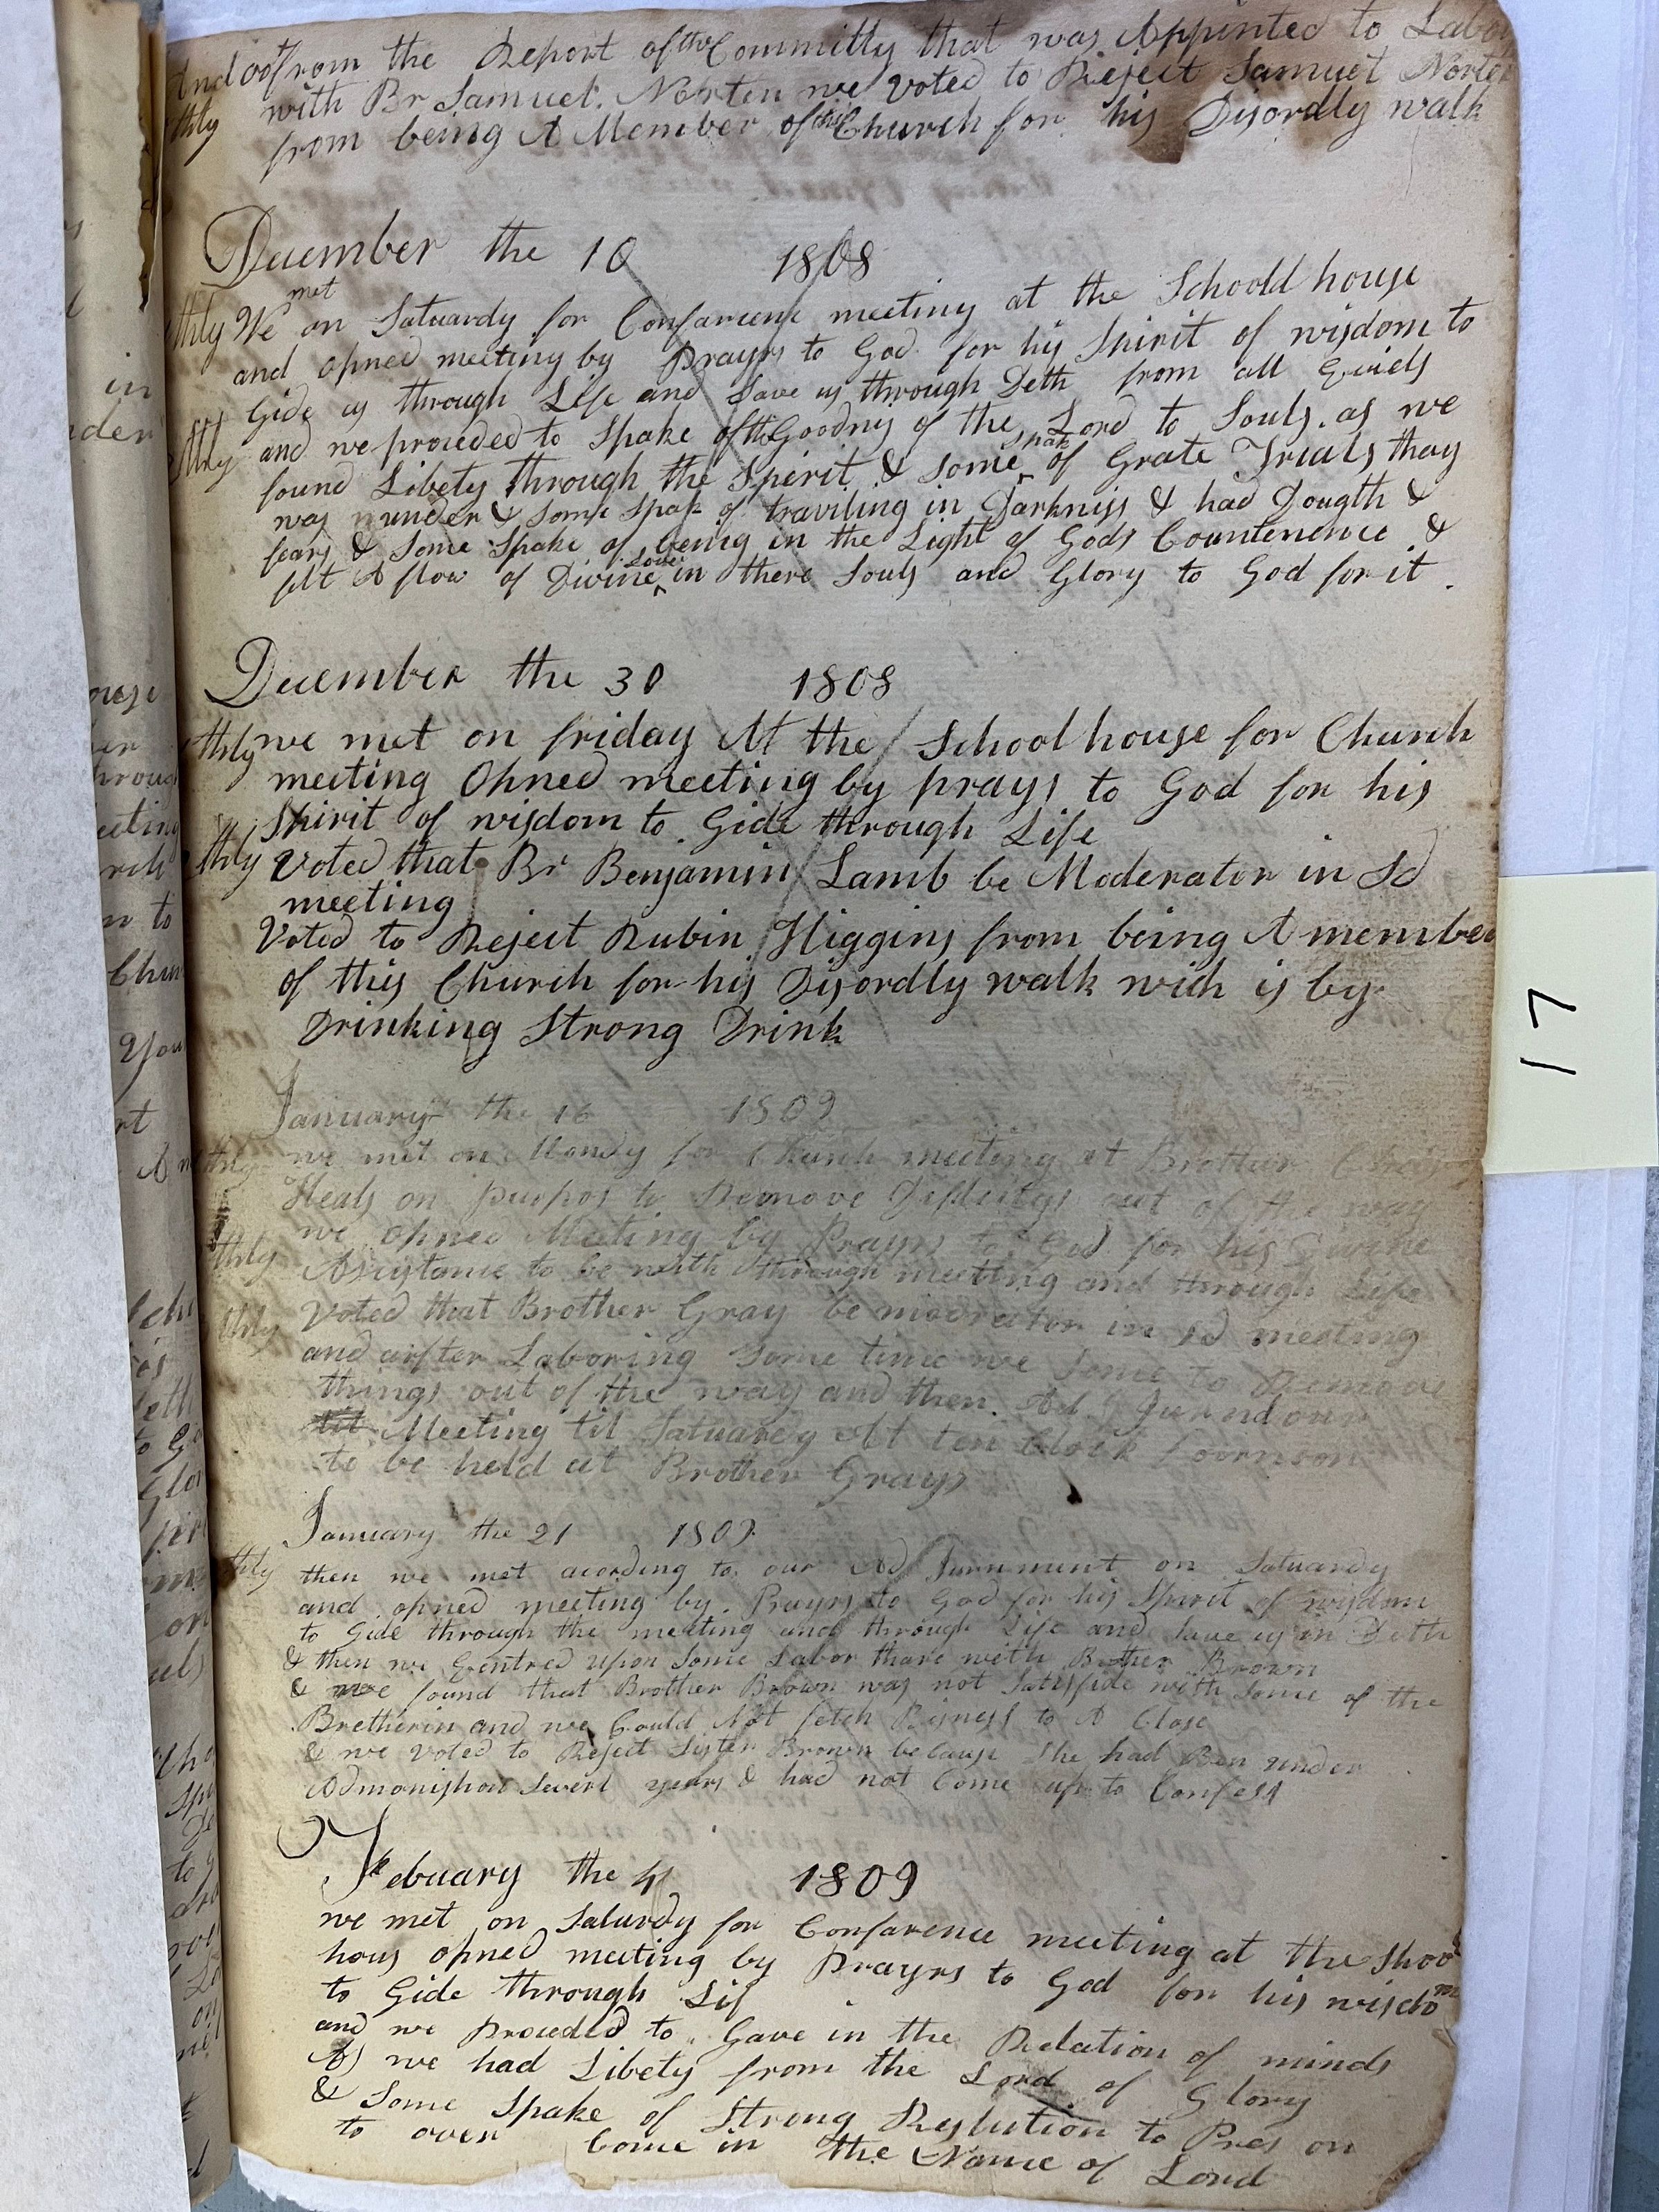 And oof from the Report of the Committy that was Appinted to Labor
thly with Br Samuel. Norten we voted to Reject Samuel Norten
from being A Member of this Church for his Disordly walk
December the 10 1808
thly We met on Satuardy for Confarence meeting at the Schoold house
and opned meeting by Prayrs to God for his Spirit of wisdom to
Gide us through Life and Save us through Deth from all Eviels
thly and we proceded to Spake of the Goodnys of the Lord to Souls. as we
found Libety through the Spirit & Some spak of Grate Trials thay
was nunder & Some Spak of traviling in Darkniss & had Dougth &
fears & Some Spake of being in the Light of Gods Countenence &
felt A flow of Divine Love in there Souls and Glory to God for it.
December the 30 1808
thly we met on friday At the School house for Church
meeting Opned meeting by prays to God for his
Spirit of wisdom to Gide through Life
thly Voted that Br Benjamin Lamb be Moderator in Sd
meeting
Voted to Reject Rubin Higgins from being A member
of this Church for his Disordly walk wich is by
Drinking Strong Drink
January the 16 1809
thly we met on Mondy for Church meeting at Brother
Heals on purpos to Remove Difficitys out of the way
thly we opned Meeting by Prayrs to God for his Divine
Asistance to be with through meeting and through Life
thly Voted that Brother Gray be modrator in sd meeting
and aifter Laboring Some time we Some to Remove
things out of the way and then. Ad Jurnd our
til Meeting til Satuardy At ten Clock foornoon
to be held at Brother Grays
January the 21 1809
thly then we met acording to our Ad Jurnment on Satuardy
and opned meeting by. Prayrs to God for his Spirit of wisdom
to Gide through the meeting and through Life and Save us in Deth
& then we Eentred upon Some Labor thare with Brother Brown
& we found that Brother Brown was not Satisfide with Some of the
Bretherin and we Could Not fetch Bisness to A Close
& we voted to Reject Sister Brown because She had Ben under
Admonishon Severl years & had not Come up to Confess
February the 4 1809
we met on Saturdy for Confarence meeting at the Shool
hous opned meeting by Prayrs to God for his wisdom
to Gide through Lif
and we proceded to Gave in the Relation of minds
As we had Libety from the Lord of Glory
& Some Spake of Strong Reslution to Pres on
to over Come in the Name of Lord
17